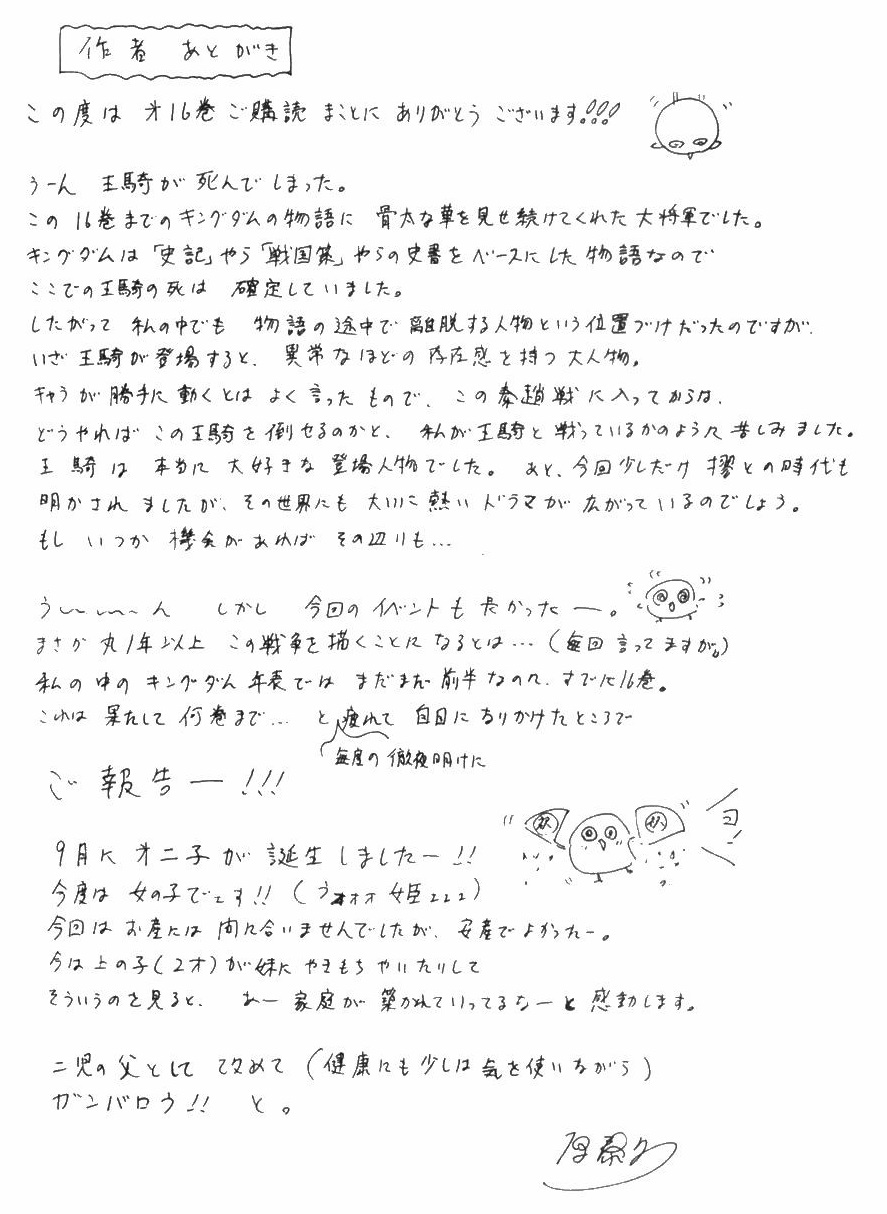 作者 あとがき
この度は 才16巻ご購読 まことに ありがとう ございます!!!
うーん 王騎が 死んで しまった。
この 16巻までの キングダムの物語に 骨太な華を見せ続けてくれた 大将軍でした。
キングダムは「史記」やら「戦国策」やらの史書を ベースにした 物語なので
ここでの王騎の死は 確定していました。
したがって 私の中でも 物語の途中で 離脱する人物という位置づけだったのですが、
いざ 王騎が登場すると、異常なほどの 存在感を持つ 大人物。
キャラが勝手に動くとは よく言った もので、この秦趙戦に入ってからは、
どうやれば この王騎を倒せるのかと、私が王騎と戦っているかのように苦しみました。
王騎は 本当に 大好きな 登場人物でした。 あと、今回少しだけ 摎との時代も
明かされ ましたが、その世界にも 大いに熱い ドラマが 広がっているのでしょう。
もし いつか 機会があれば その辺りも…
う〜〜〜ん しかし 今回の イベントも 長かったー。
まさか 丸1年以上 この戦争を描くことに なるとは…(毎回 言ってますが。)
私の中の キングダム 年表では まだまだ 前半なので、すでに16巻。
これは 果たして 何巻まで… と 疲れて 白目になりかけたところで
毎度の徹夜明けに
ご報告ー!!!
祝 祝
9月に 才二子が 誕生しましたー!!
今度は 女の子でェす!!(うォォォ 姫ェェェ)
今回は お産には 間に合いませんでしたが、安産でよかったー。
今は上の子(2才)が妹に やきもち やいたりして
そういうのを見ると、あー 家庭が 築かれていってるなーと 感動します。
二児の父として 改めて(健康にも少しは 気を使いながら)
ガンバロウ!! と。
原泰久